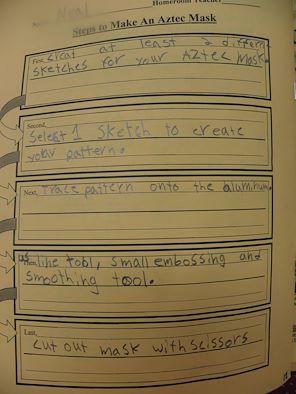 Neal
Homeroom Teacher
Steps to Make An Aztec Mask
First, creat at least 2 differnt
sketches for your Aztec Mask.
Second,
Select 1 sketch to create
your pattern.
Next, trace pattern onto the aluminum.
Then, use line tool, small embossing and
smoothing tool.
Last,
cut out mask with scissors